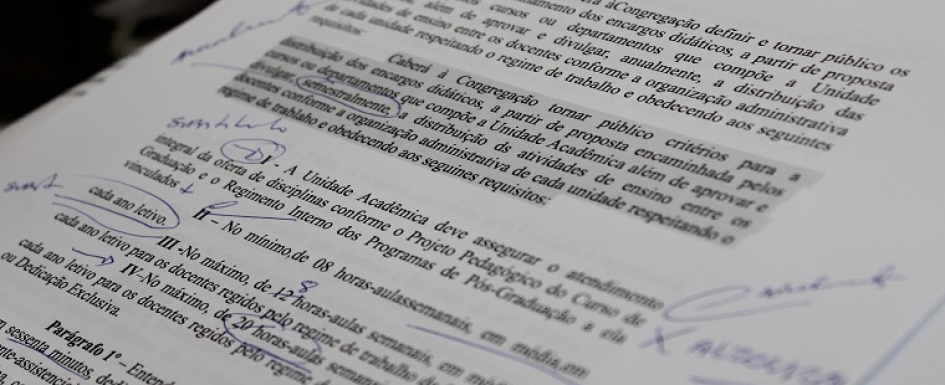 àCongregação definir e tornar público os
encargos didáticos, a partir de proposta
cursos ou departamentos que compõe a Unidade
além de aprovar e divulgar, anualmente, a distribuição das
de ensino entre os docentes conforme a organização administrativa
de cada unidade respeitando o regime de trabalho e obedecendo aos seguintes
requisitos:
Caberá à Congregação tornar público critérios para a
distribuição dos encargos didáticos, a partir de proposta encaminhada pelos
cursos ou departamentos que compõe a Unidade Acadêmica além de aprovar e
divulgar, semestralmente, a distribuição ds atividades de ensino entre os
docentes conforme a organização administrativa de cada unidade respeitando o
regime de trablaho e obedecendo aos seguines requisitos:
I - A Unidade Acadêmica deve assegurar o atendimento
integral da oferta de disciplinas conforme o Projeto Pedagógico do Curso de
Graduação e o Regimento Interno dos Programas de Pós-Graduação a ela
vinculados
II – No mínimo,de 08 horas-aulassemanais, em média,em
cada ano letivo.
III -No máximo, de 12 8 horas-aulas semanais, em
cada ano letivo para os docentes regidos pelo regime de trabalho
IV-No máximo, de 20 horas-aulas
cada ano letivo para os docentes regidos pelo
ou Dedicação Exclusiva.
Parágrafo 1º –
sessenta minutos,
X